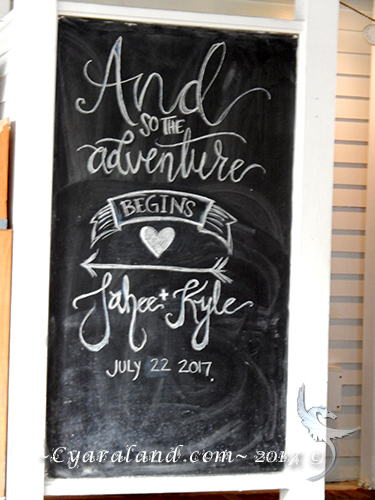 And
SO THE
adventure
BEGINS
Jahee + Kyle
JULY 22 2017.
~Cyaraland.com~ 2017 ©